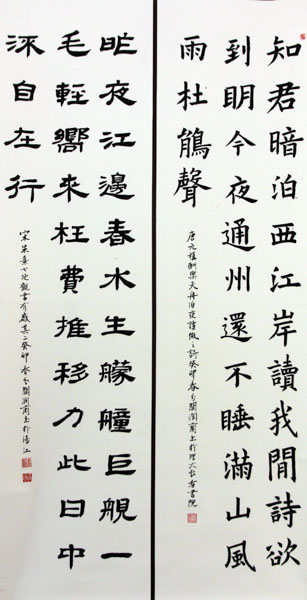 知君暗泊西江岸讀我閒詩欲
到明今夜通州還不睡滿山風
雨杜鵑聲
唐元稹酬樂天舟泊夜讀微之詩癸卯春
昨夜江邊春水生艨艟巨艦一
毛輕嚮來枉費推移力此日中
流自在行
宋朱熹七絕觀書有感其二癸卯春